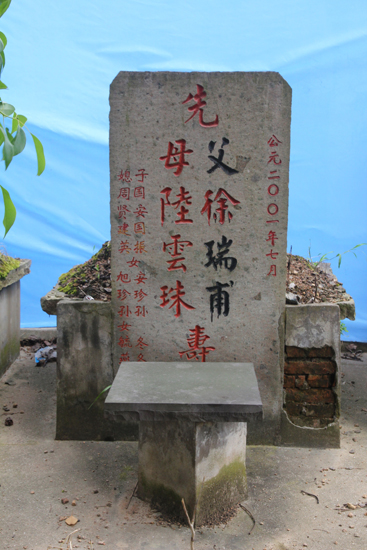 公元二〇〇一年七月
先
父徐瑞甫
母陸雲珠
壽
子国安国振女安珍孙冬
媳周贤建英旭珍孙女毓